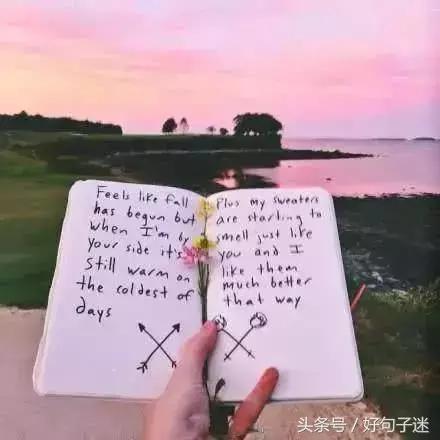 Feels like fall
has begun but
when I'm by
your side it's
still warm on
the coldest of
days
Plus my sweaters
are starting to
smell just like
you and I
like them
much better
that way
头条号/好句子迷